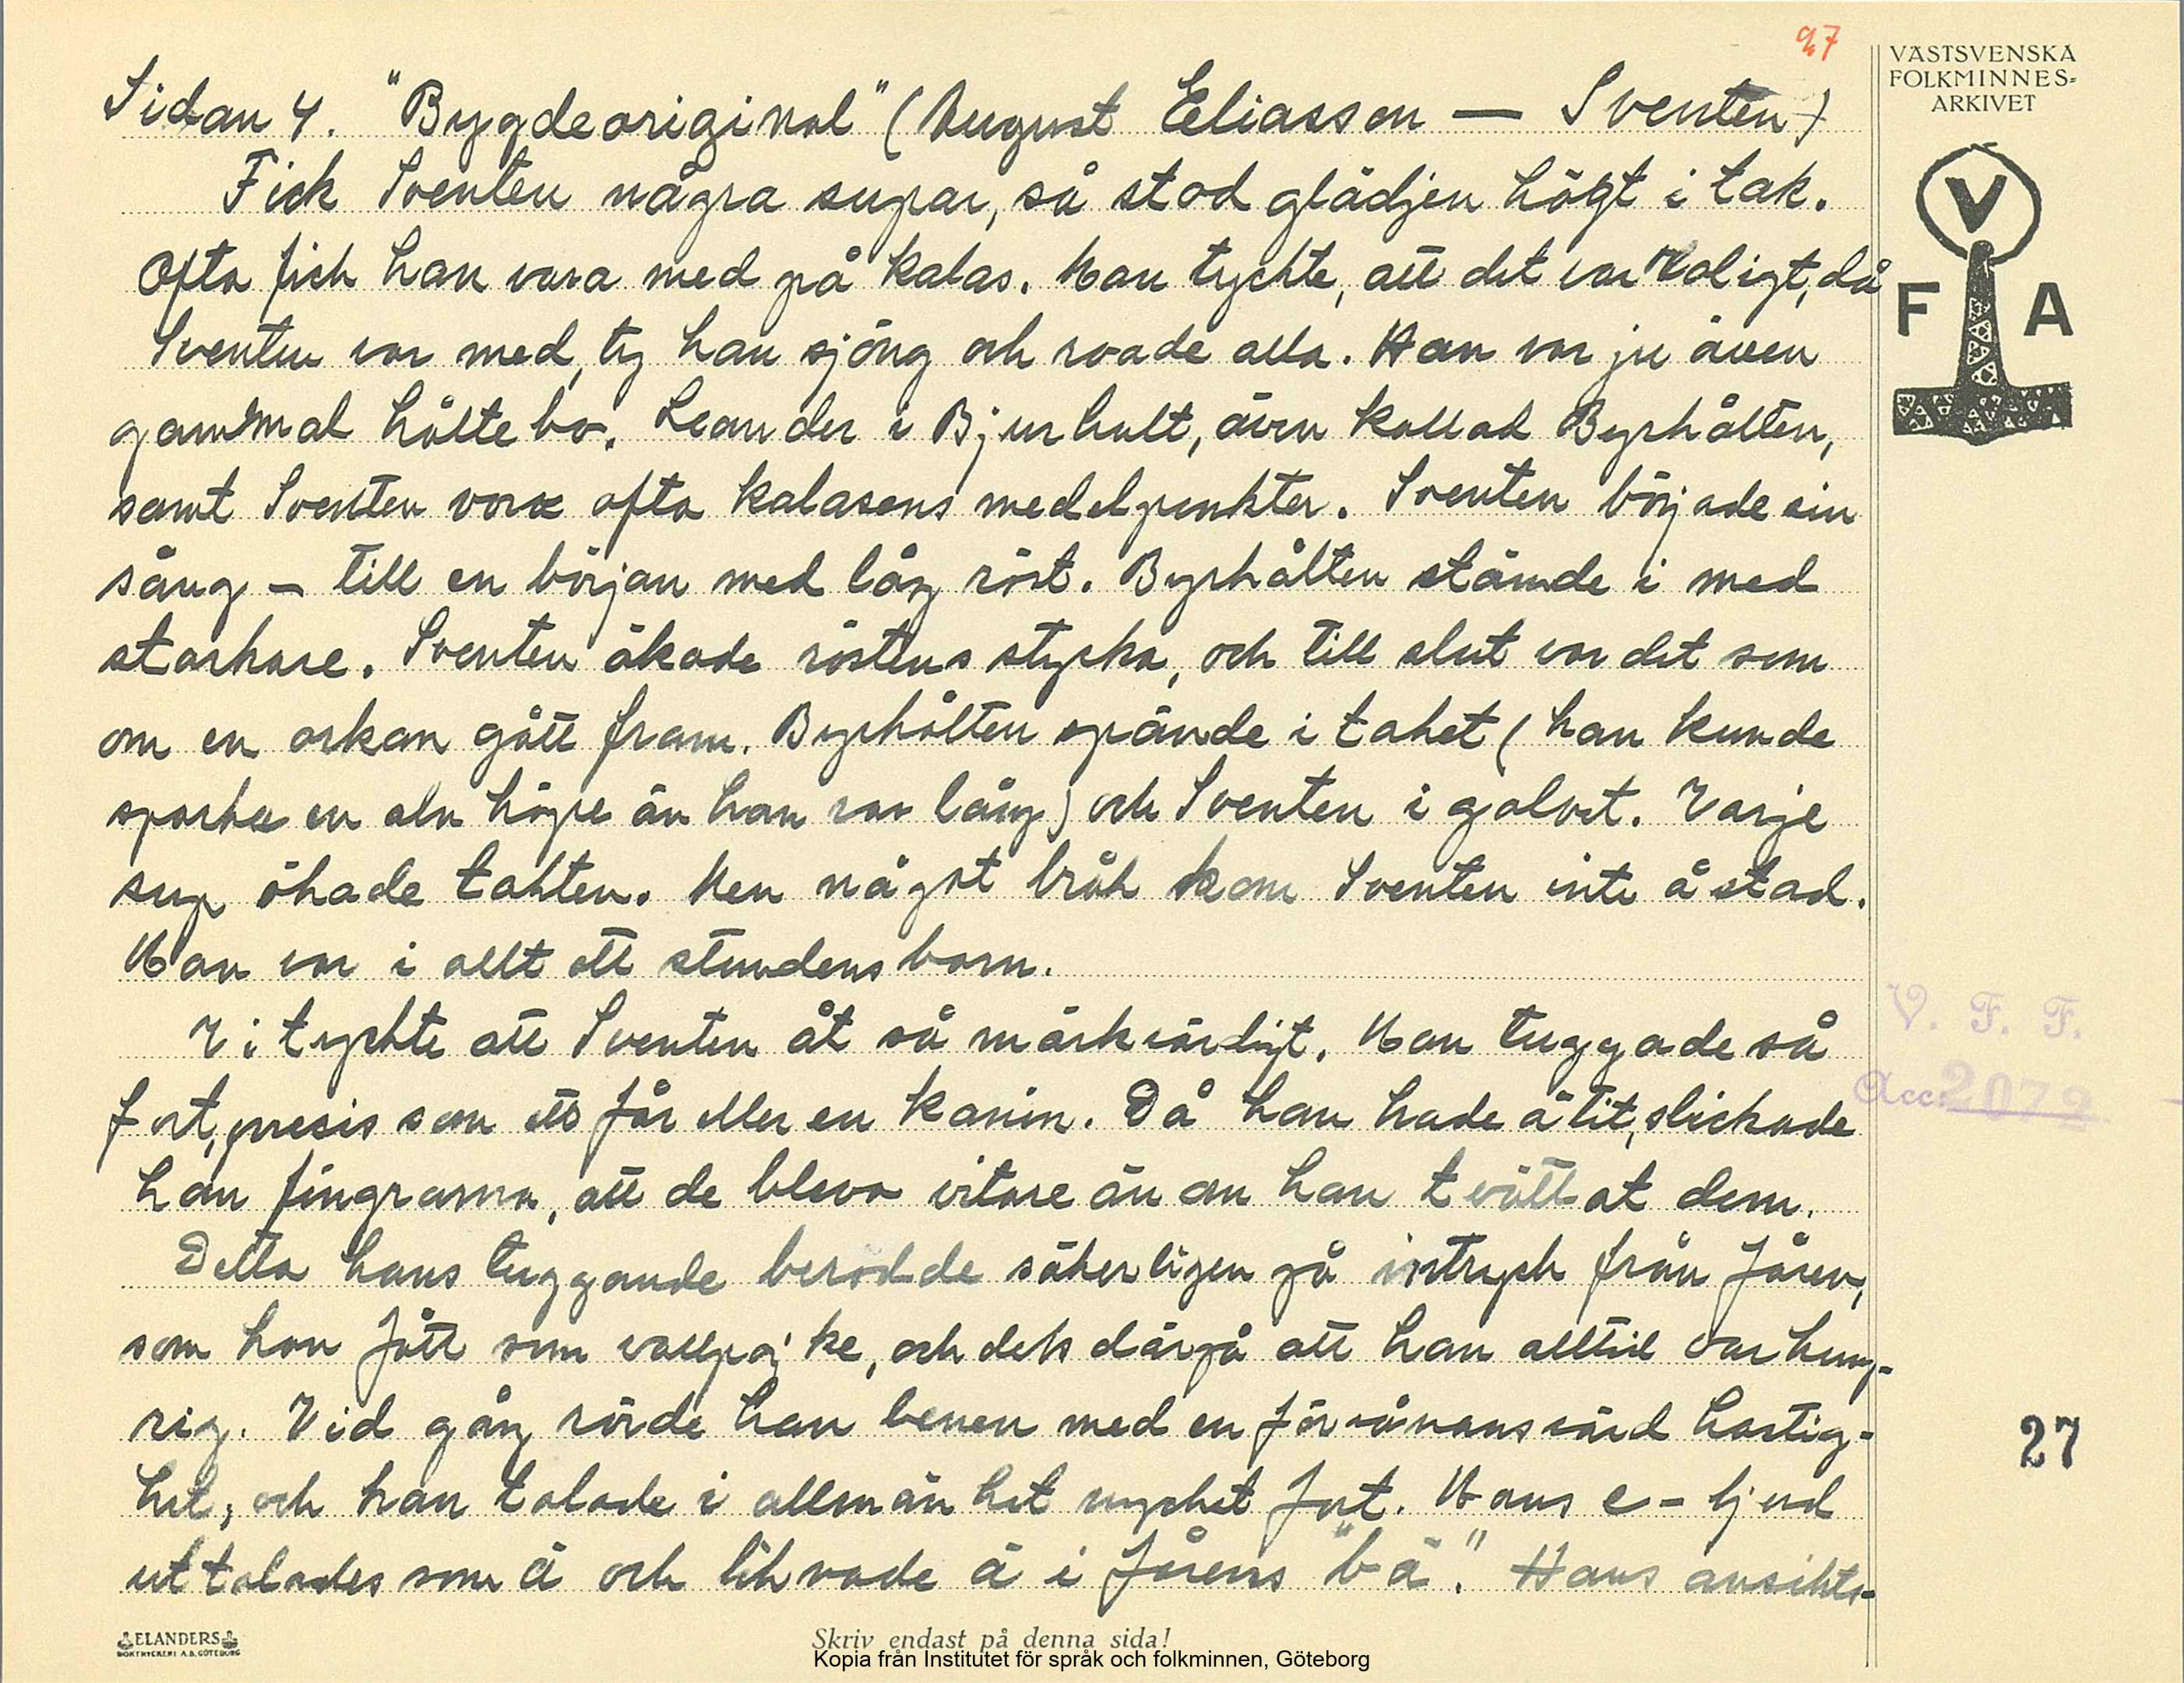 27
VÄSTSVENSKA
FOLKMINNES-
ARKIVET
V
F A
Sidan 4. "Bygdeoriginal" (August Eliasson — Sventen)
Fick Sventen några supar, så stod glädjen högt i tak.
Ofta fick han vara med på kalas. Man tyckte, att det var roligt, då
Sventen var med, ty han sjöng och roade alla. Han var ju även
gammal håltebo. Leander i Bjurhult, även kallad Byrhålten,
samt Sventen vore ofta kalasens medelpunkter. Sventen började sin
sång – till en början med låg röst. Byrhålten stämde i med
starkare. Sventen ökade röstens styrka, och till slut var det som
om en orkan gått fram. Byrhålten spände i taket (han kunde
sparka en aln högre än han var lång) och Sventen i golvet. Varje
sup ökade takten. Men något bråk kom Sventen inte åstad.
Han var i allt ett stundens barn.
Vi tyckte att Sventen åt så märkvärdigt. Han tuggade så
fort, presis som ett får eller en kanin. Då han hade ätit, slickade
han fingrarna, att de blevo vitare än om han tvättat dem.
Detta hans tuggande berodde säkerligen på intryck från fåren,
som han fått som vallpojke, och dels därpå att han alltid var hung-
rig. Vid gång rörde han benen med en förvånansvärd hastig-
het, och han talade i allmänhet mycket fort. Hans e-ljud
uttalades som ä och liknade ä i fårens "bä". Hans ansikts-
V. F. F.
Acc. 2072
27
ELANDERS
BOKTRYCKERI A.B. GÖTEBORG
Skriv endast på denna sida!
Kopia från Institutet för språk och folkminnen, Göteborg